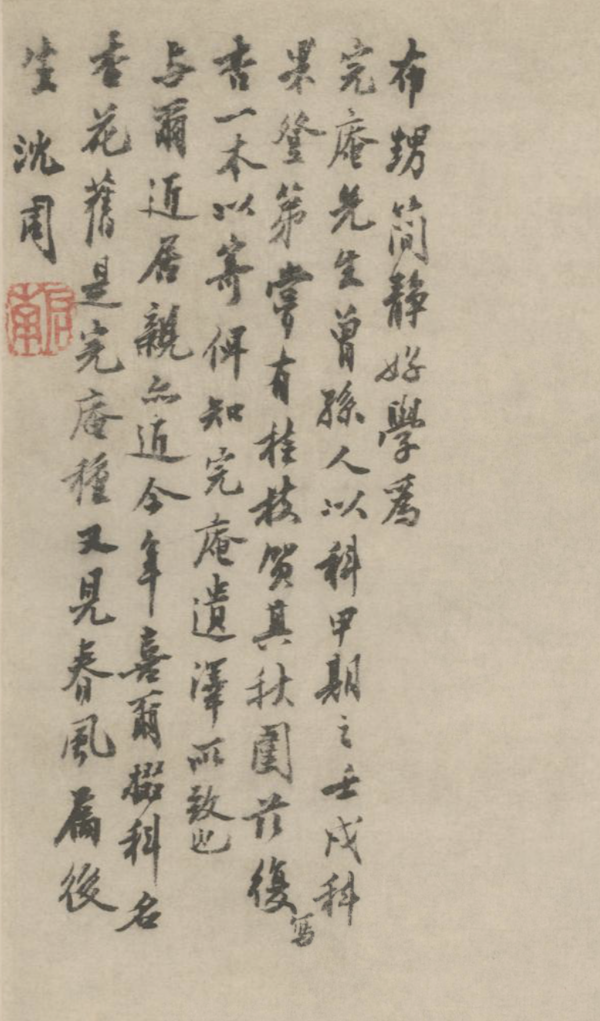 布甥簡靜好學爲
完庵先生曾孫人以科甲期之壬戌科
果登第嘗有桂枝賀其秋闈茲復寫
杏一本以寄俾知完庵遺澤所致也
与爾近居親亦近今年喜爾掇科名
杏花舊是完庵種又見春風屬後
生 沈周
啓南